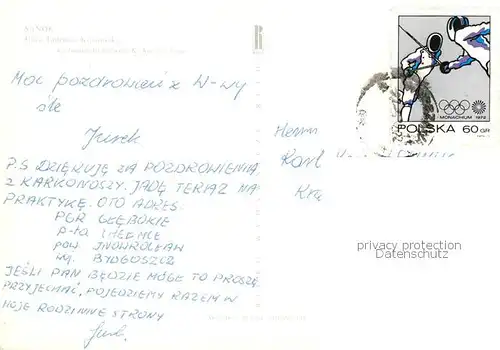 SANOK
MONACHIUM 1972
POLSKA 60 GR
Moc pozdrowień z W-wy
śle
Jurek
Herrn
Karl
P.S DZIĘKUJĘ ZA POZDROWIENIA
Z KARKONOSZY. JADĘ TERAZ NA
PRAKTYKĘ. OTO ADRES.
PGR GŁĘBOKIE
p-ta CHEŁMCE
pow. INOWROCŁAW
BYDGOSZCZ
JEŚLI PAN BĘDZIE MÓGŁ TO PROSZĘ
PRZYJECHAĆ, POJEDZIEMY RAZEM W
MOJE RODZINNE STRONY
privacy protection
Datenschutz